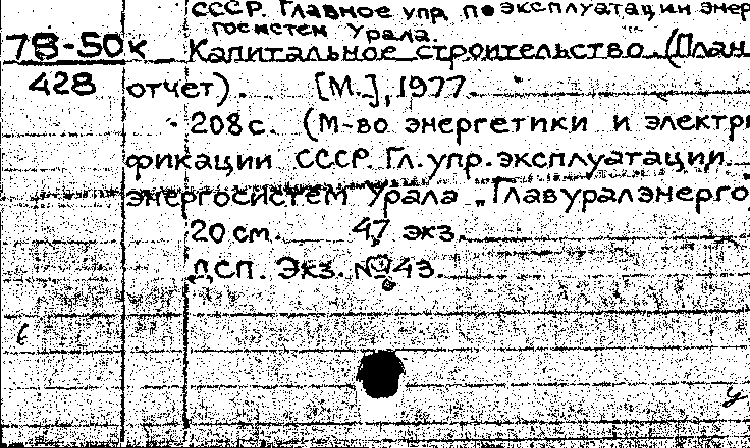 СССР. Главное упр. по эксплуатации энер
госистем Урала.
78-50к Капитальное строительство (План
428 отчет). [М.], 1977.
208 с. (М-во энергетики и электри
фикации СССР. Гл. упр. эксплуатации
энергосистем Урала „Главуралэнерго
20 см. 47 экз.
ДСП. Экз. № 43.